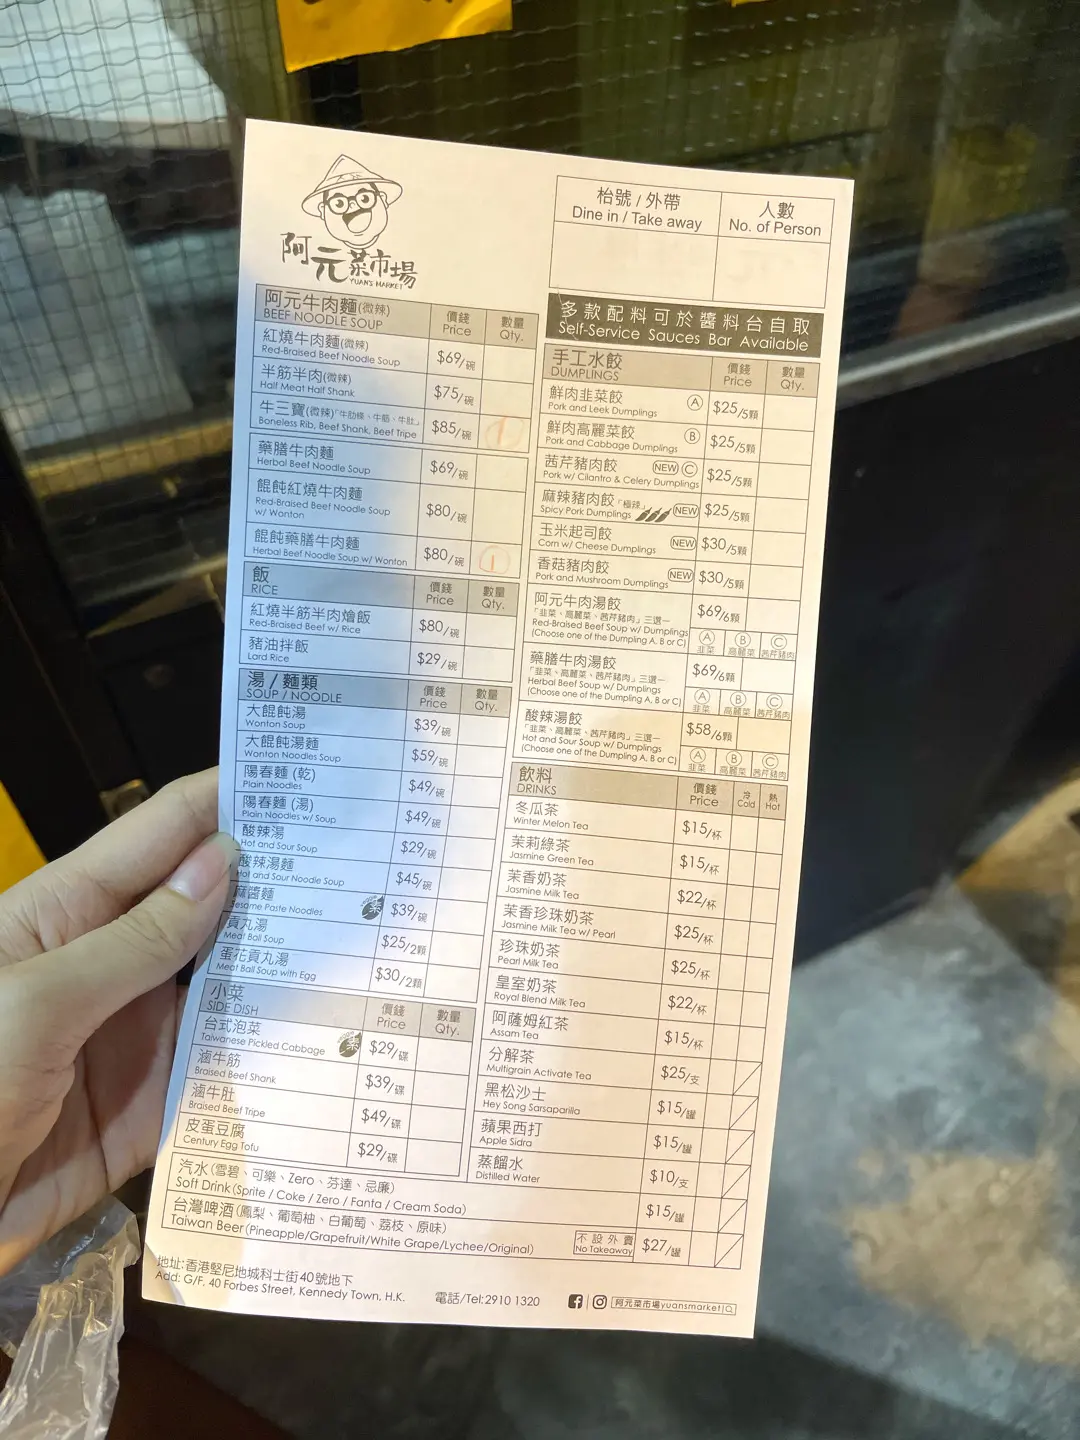 阿元菜市場
YUAN'S MARKET
枱號 / 外帶
Dine in / Take away
人數
No. of Person
阿元牛肉麵(微辣)
BEEF NOODLE SOUP
價錢
Price
數量
Qty.
紅燒牛肉麵(微辣)
Red-Braised Beef Noodle Soup
$69/碗
半筋半肉(微辣)
Half Meat Half Shank
$75/碗
牛三寶(微辣)「牛肋條、牛筋、牛肚」
Boneless Rib, Beef Shank, Beef Tripe
$85/碗
1
藥膳牛肉麵
Herbal Beef Noodle Soup
$69/碗
餛飩紅燒牛肉麵
Red-Braised Beef Noodle Soup
w/ Wanton
$80/碗
餛飩藥膳牛肉麵
Herbal Beef Noodle Soup w/ Wonton
$80/碗
1
飯
RICE
價錢
Price
數量
Qty.
紅燒半筋半肉燴飯
Red-Braised Beef w/ Rice
$80/碗
豬油拌飯
Lard Rice
$29/碗
湯 / 麵類
SOUP / NOODLE
價錢
Price
數量
Qty.
大餛飩湯
Wonton Soup
$39/碗
大餛飩湯麵
Wanton Noodles Soup
$59/碗
陽春麵 (乾)
Plain Noodles
$49/碗
陽春麵 (湯)
Plain Noodles w/ Soup
$49/碗
酸辣湯
Hot and Sour Soup
$29/碗
酸辣湯麵
Hot and Sour Noodle Soup
$45/碗
麻醬麵
Sesame Paste Noodles
素
$39/碗
貢丸湯
Meat Ball Soup
$25/2顆
蛋花貢丸湯
Meat Ball Soup with Egg
$30/2顆
小菜
SIDE DISH
價錢
Price
數量
Qty.
台式泡菜
Taiwanese Pickled Cabbage
素
$29/碟
滷牛筋
Braised Beef Shank
$39/碟
滷牛肚
Braised Beef Tripe
$49/碟
皮蛋豆腐
Century Egg Tofu
$29/碟
多款配料可於醬料台自取
Self-Service Sauces Bar Available
手工水餃
DUMPLINGS
價錢
Price
數量
Qty.
鮮肉韭菜餃
Pork and Leek Dumplings
A
$25/5顆
鮮肉高麗菜餃
Pork and Cabbage Dumplings
B
$25/5顆
茜芹豬肉餃
NEW C
Pork w/ Cilantro & Celery Dumplings
$25/5顆
麻辣豬肉餃「極辣」
Spicy Pork Dumplings
NEW
$25/5顆
玉米起司餃
Corn w/ Cheese Dumplings
NEW
$30/5顆
香菇豬肉餃
Pork and Mushroom Dumplings
NEW
$30/5顆
阿元牛肉湯餃
「韭菜、高麗菜、茜芹豬肉」三選一
Red-Braised Beef Soup w/ Dumplings
(Choose one of the Dumpling A, B or C)
$69/6顆
A B C
韭菜 高麗菜 茜芹豬肉
藥膳牛肉湯餃
「韭菜、高麗菜、茜芹豬肉」三選一
Herbal Beef Soup w/ Dumplings
(Choose one of the Dumpling A, B or C)
$69/6顆
A B C
韭菜 高麗菜 茜芹豬肉
酸辣湯餃
「韭菜、高麗菜、茜芹豬肉」三選一
Hot and Sour Soup w/ Dumplings
(Choose one of the Dumpling A, B or C)
$58/6顆
A B C
韭菜 高麗菜 茜芹豬肉
飲料
DRINKS
價錢
Price
冷
Cold
熱
Hot
冬瓜茶
Winter Melon Tea
$15/杯
茉莉綠茶
Jasmine Green Tea
$15/杯
茉香奶茶
Jasmine Milk Tea
$22/杯
茉香珍珠奶茶
Jasmine Milk Tea w/ Pearl
$25/杯
珍珠奶茶
Pearl Milk Tea
$25/杯
皇室奶茶
Royal Blend Milk Tea
$22/杯
阿薩姆紅茶
Assam Tea
$15/杯
分解茶
Multigrain Activate Tea
$25/支
黑松沙士
Hey Song Sarsaparilla
$15/罐
蘋果西打
Apple Sidra
$15/罐
蒸餾水
Distilled Water
$10/支
汽水 (雪碧、可樂、Zero、芬達、忌廉)
Soft Drink (Sprite / Coke / Zero / Fanta / Cream Soda)
$15/罐
台灣啤酒 (鳳梨、葡萄柚、白葡萄、荔枝、原味)
Taiwan Beer (Pineapple/Grapefruit/White Grape/Lychee/Original)
不設外賣
No Takeaway
$27/罐
地址:香港堅尼地城科士街40號地下
Add: G/F, 40 Forbes Street, Kennedy Town, H.K.
電話/Tel:2910 1320
阿元菜市場yuansmarket